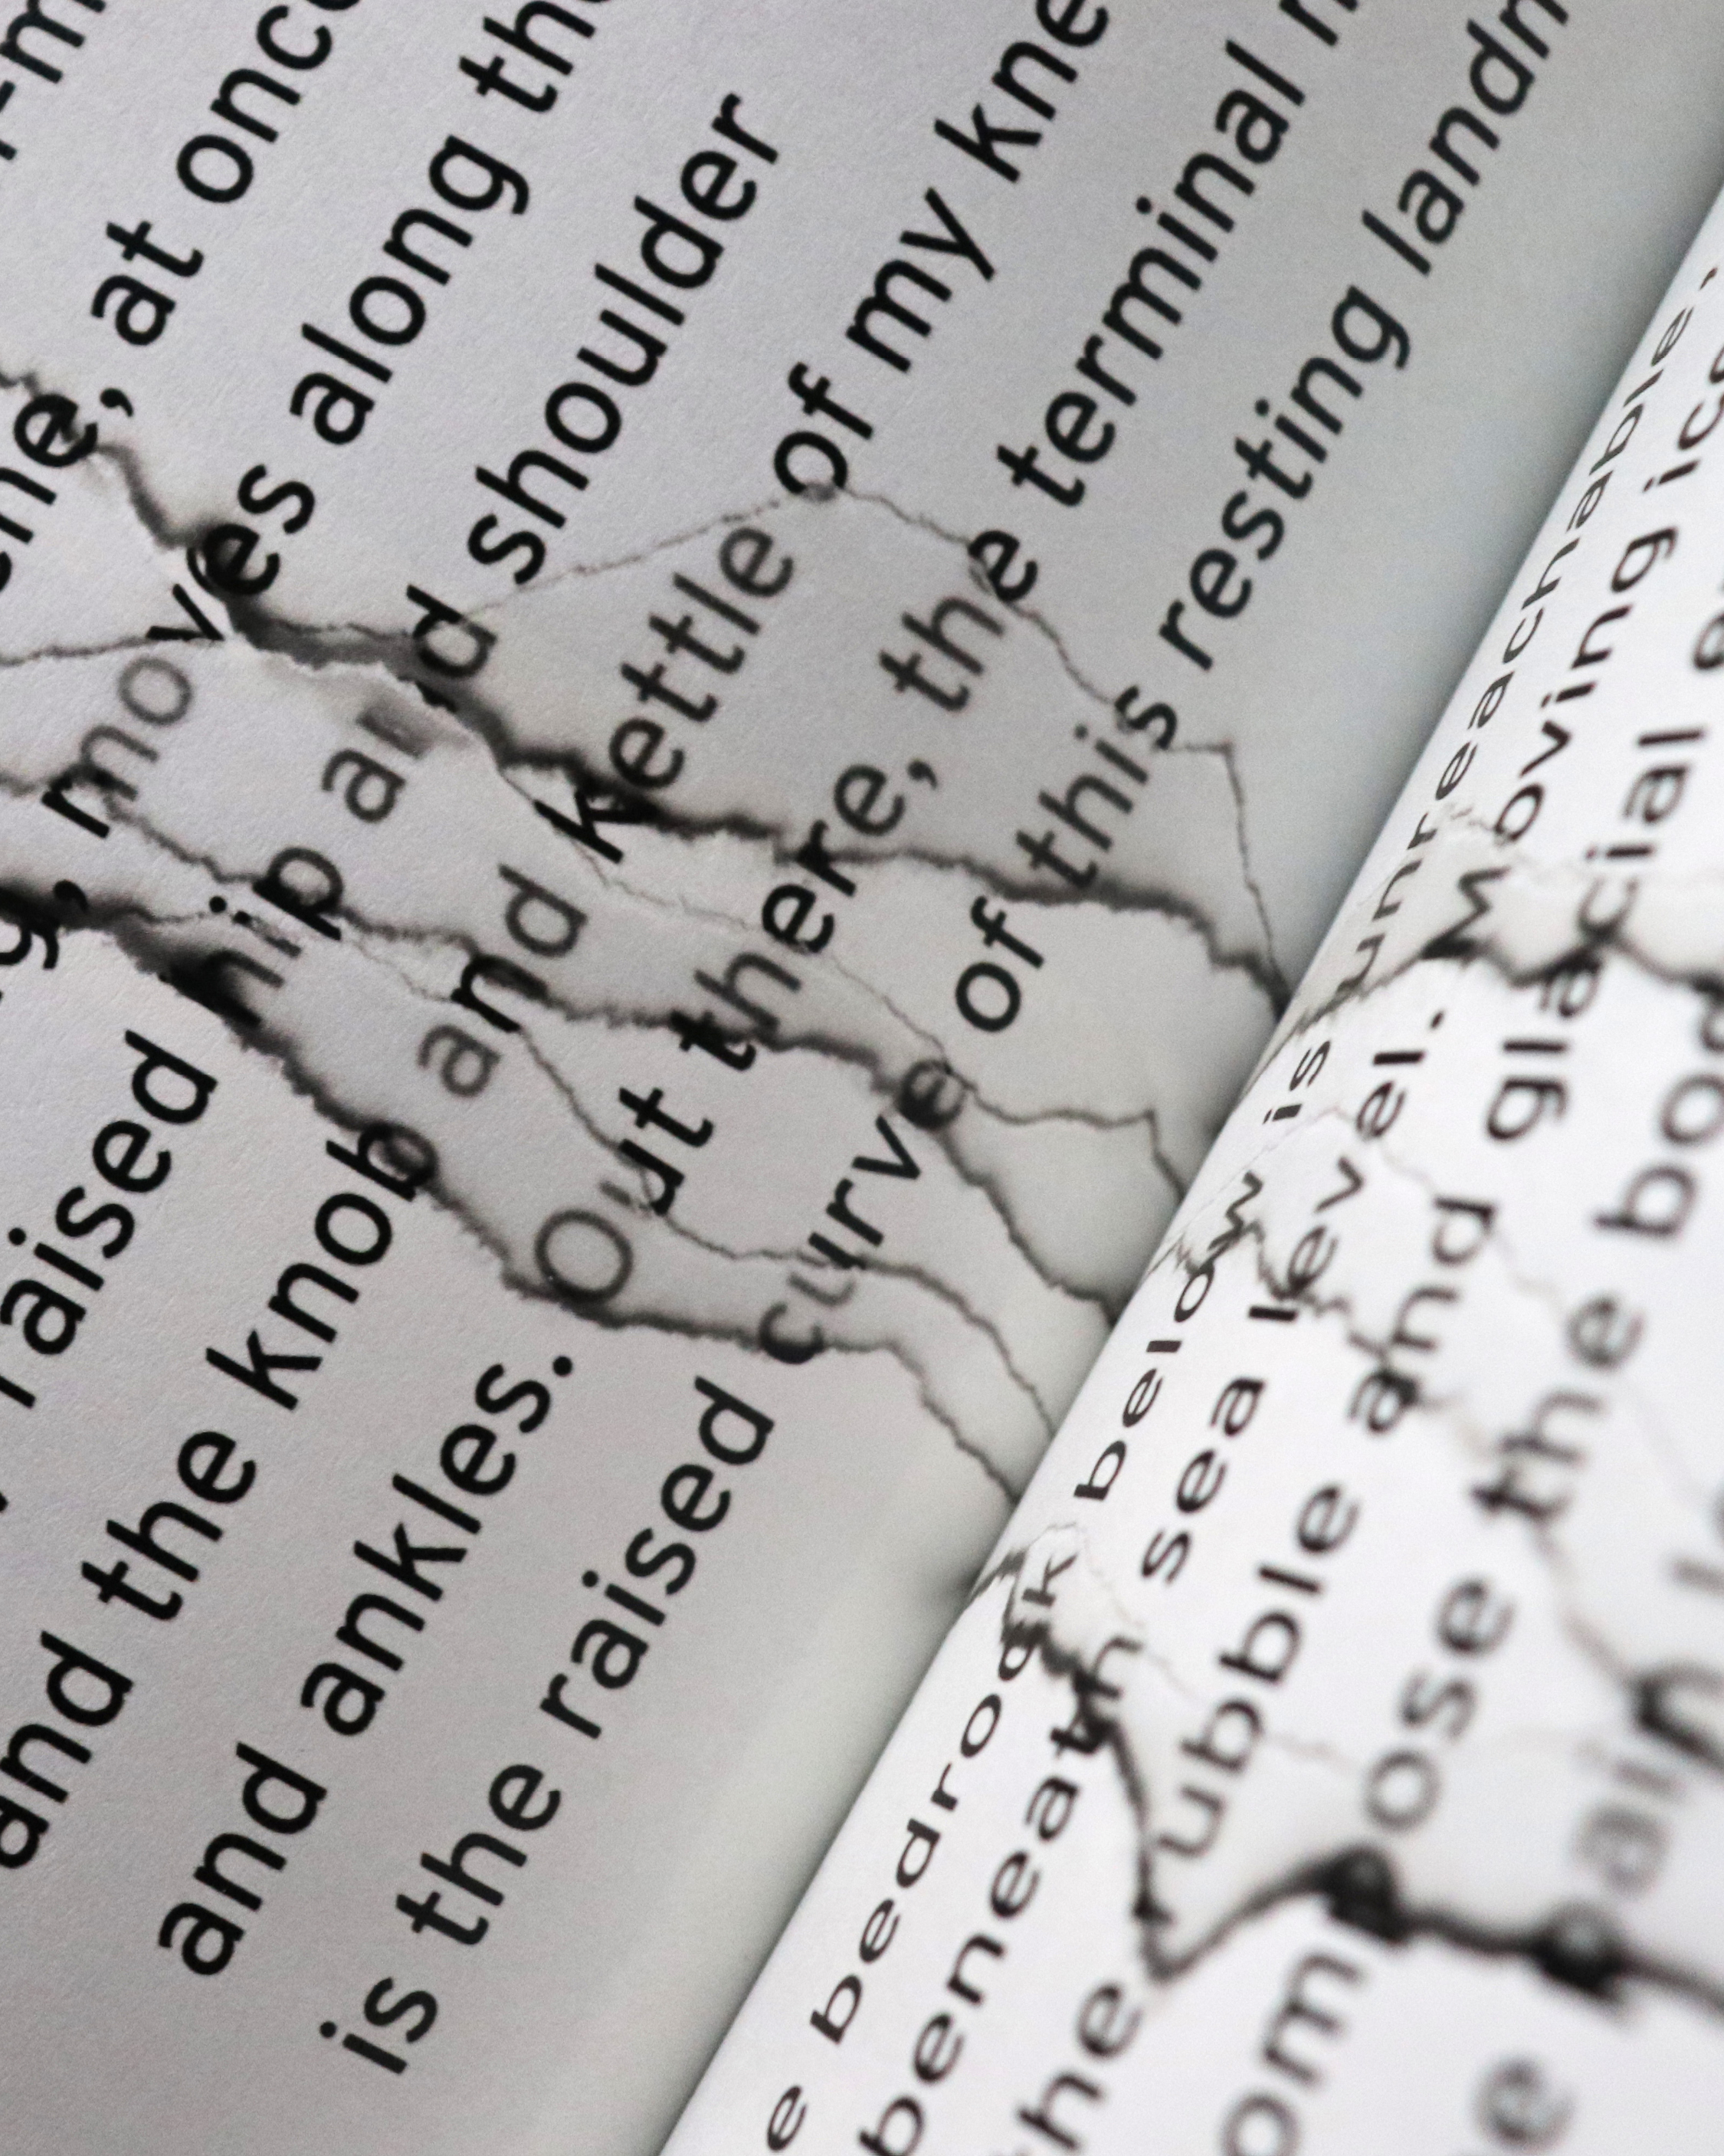 ne, at once
g, moves along the
raised hip and shoulder
and the knob and kettle of my kne
and ankles. Out there, the terminal
is the raised curve of this resting landm
e bedrock below is unreachable,
beneath sea level. Moving ice
the rubble and glacial
om ose the bod
e ain